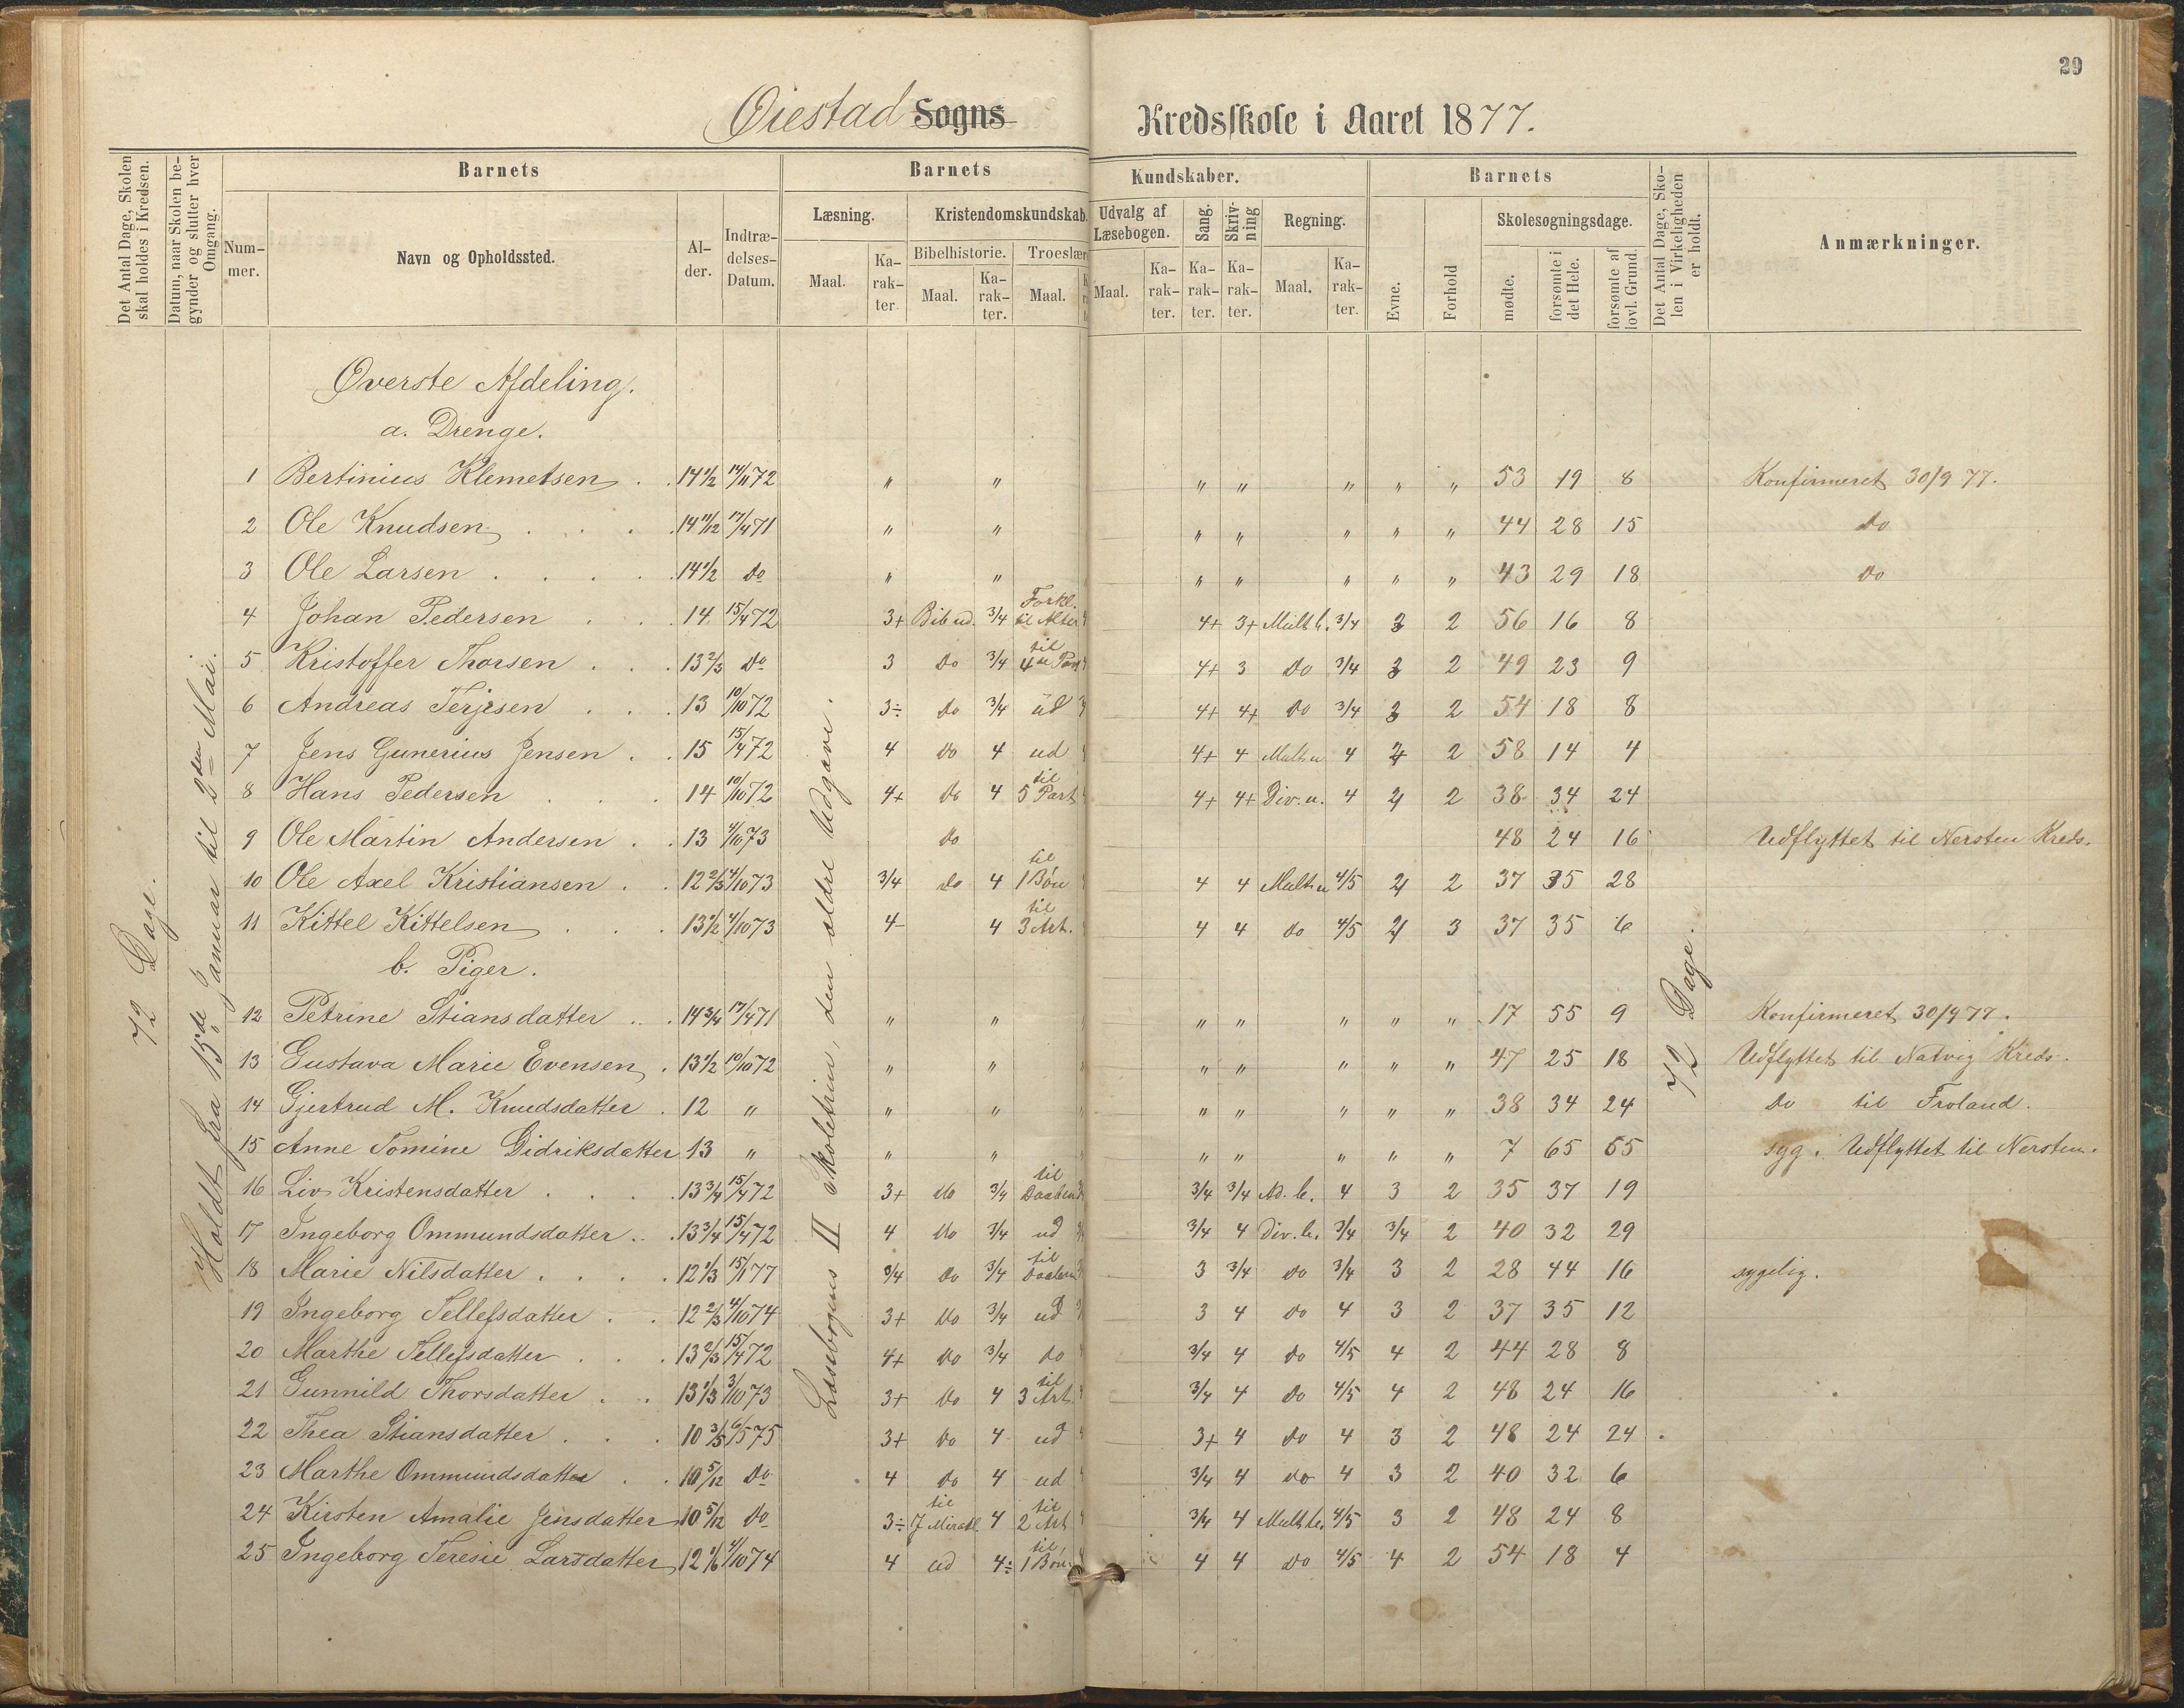 29
Øiestad Sogns Kredsskole i Aaret 1877.
Det Antal Dage, Skolen skal holdes i Kredsen.
Datum, naar Skolen begynder og slutter hver Omgang.
Barnets
Num-mer.
Navn og Opholdssted.
Al-der.
Indtræ-delses-Datum.
Barnets Kundskaber.
Læsning.
Maal.
Ka-rak-ter.
Kristendomskundskab.
Bibelhistorie.
Maal.
Ka-rak-ter.
Troeslær
Maal.
Udvalg af Læsebogen.
Maal.
Ka-rak-ter.
Sang.
Ka-rak-ter.
Skriv-ning
Ka-rak-ter.
Regning.
Maal.
Ka-rak-ter.
Barnets
Evne.
Forhold
Skolesøgningsdage.
mødte.
forsømte i det Hele.
forsømte af lovl. Grund.
Det Antal Dage, Sko-len i Virkeligheden er holdt.
Anmærkninger.
72 Dage.
Holdt fra 15de Januar til 2den Mai.
Læsebogens II Skoletrin, den ældre Udgave.
72 Dage.
Øverste Afdeling.
a. Drenge.
1 Bertinius Klemetsen 14 1/2 14/11 72 " " " " " " " 53 19 8 Konfirmeret 30/9 77.
2 Ole Knudsen 14 11/12 17/4 71 " " " " " " " 44 28 15 Do
3 Ole Larsen 14 1/2 Do " " " " " " " 43 29 18 Do
4 Johan Pedersen 14 15/4 72 3+ Bib ud. 3/4 Forkl. til Alter 4+ 3+ Mult b. 3/4 3 2 56 16 8
5 Kristoffer Thorsen 13 2/3 Do 3 Do 3/4 til 4de Part 4+ 3 Do 3/4 3 2 49 23 9
6 Andreas Terjesen 13 10/10 72 3÷ Do 3/4 ud 4+ 4+ Do 3/4 3 2 54 18 8
7 Jens Gunerius Jensen 15 15/4 72 4 Do 4 ud 4+ 4 Mult u 4 4 2 58 14 4
8 Hans Pedersen 14 10/10 72 4+ Do 4 til 5 Part 4+ 4+ Div. u. 4 4 2 38 34 24
9 Ole Martin Andersen 13 4/10 73 Do 48 24 16 Udflyttet til Nersten Kreds.
10 Ole Axel Kristiansen 12 2/3 4/10 73 3/4 Do 4 til 1 Bøn 4 4 Mult u 4/5 4 2 37 35 28
11 Kittel Kittelsen 13 1/2 4/10 73 4- 4 til 3 Art. 4 4 do 4/5 4 3 37 35 6
b. Piger.
12 Petrine Stiansdatter 14 3/4 17/4 71 " " " " " " " 17 55 9 Konfirmeret 30/9 77.
13 Gustava Marie Evensen 13 1/2 10/10 72 " " " " " " " 47 25 18 Udflyttet til Natvig Kreds.
14 Gjertrud M. Knudsdatter 12 " " " " " " " " 38 34 24 Do til Froland.
15 Anne Tomine Didriksdatter 13 " " " " " " " " 7 65 65 syg. Udflyttet til Nersten.
16 Liv Kristensdatter 13 3/4 15/4 72 3+ Do 3/4 til Daaben 3/4 3/4 Ad. b. 4 3 2 35 37 19
17 Ingeborg Ommundsdatter 13 3/4 15/4 72 4 Do 3/4 ud 3/4 4 Div. b. 3/4 3/4 2 40 32 29
18 Marie Nilsdatter 12 1/3 15/1 77 3/4 Do 3/4 til Daaben 3 3/4 do 3/4 3 2 28 44 16 sygelig.
19 Ingeborg Tellefsdatter 12 2/3 4/10 74 3+ Do 3/4 ud 3 4 do 4 3 2 37 35 12
20 Marthe Tellefsdatter 13 2/3 15/4 72 4+ Do 3/4 do 3/4 4 do 4/5 4 2 44 28 8
21 Gunnild Thorsdatter 13 1/3 3/10 73 3+ Do 4 til 3 Art. 3/4 4 Do 4/5 4 2 48 24 16
22 Thea Stiansdatter 10 3/5 6/5 75 3+ Do 4 ud 3+ 4 do 4 3 2 48 24 24
23 Marthe Ommundsdatter 10 5/12 Do 4 Do 4 ud 3/4 4 do 4 3 2 40 32 6
24 Kirsten Amalie Jensdatter 10 5/12 Do 3÷ til 7 Mirakl 4 til 2 Art 3/4 4 Mult b. 4/5 3 2 48 24 8
25 Ingeborg Teresie Larsdatter 12 1/6 4/10 74 4 ud 4÷ til 1 Bøn 4 4 Do 4/5 4 2 54 18 4